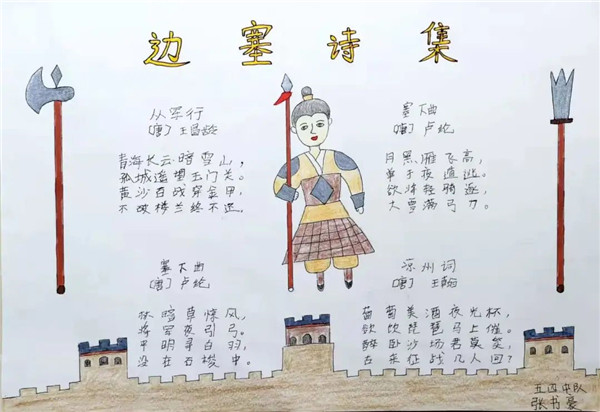 边塞诗集
从军行
[唐] 王昌龄
青海长云暗雪山，
孤城遥望玉门关。
黄沙百战穿金甲，
不破楼兰终不还，
塞下曲
[唐] 卢纶
月黑雁飞高，
单于夜遁逃。
欲将轻骑逐，
大雪满弓刀。
塞下曲
[唐] 卢纶
林暗草惊风，
将军夜引弓。
平明寻白羽，
没在石棱中。
凉州词
[唐] 王翰
葡萄美酒夜光杯，
欲饮琵琶马上催。
醉卧沙场君莫笑，
古来征战几人回？
五四中队
张书豪